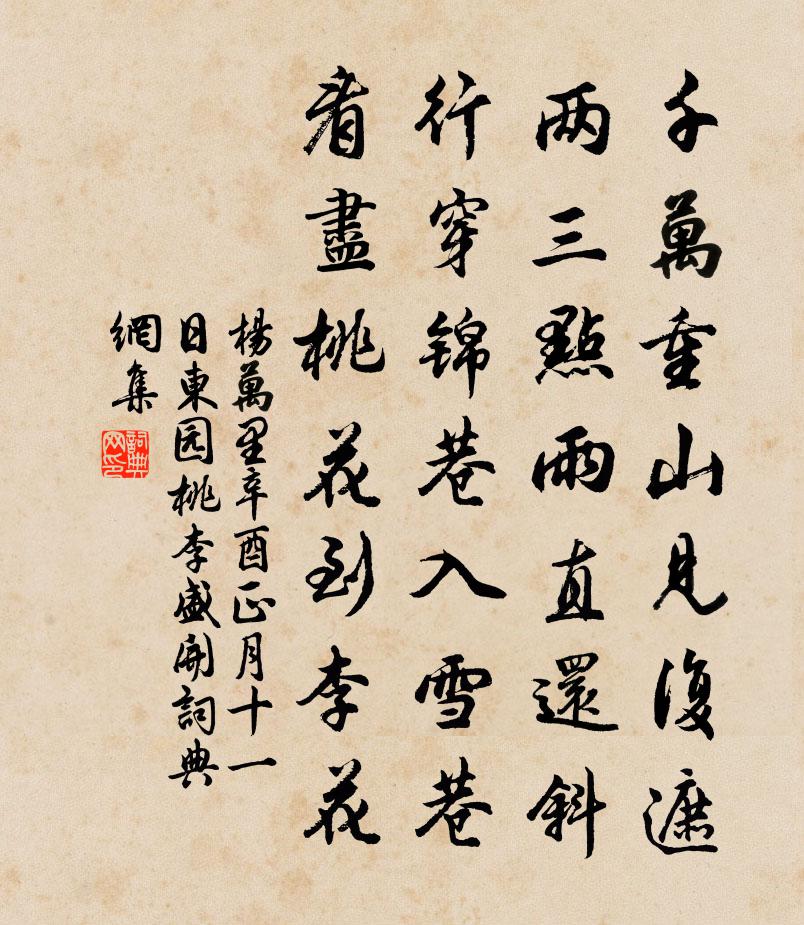 千萬重山見復遮
两三點雨直還斜
行穿锦巷入雪巷
看盡桃花到李花
楊萬里辛酉正月十一
日東园桃李盛開詞典
網集
詞典网印